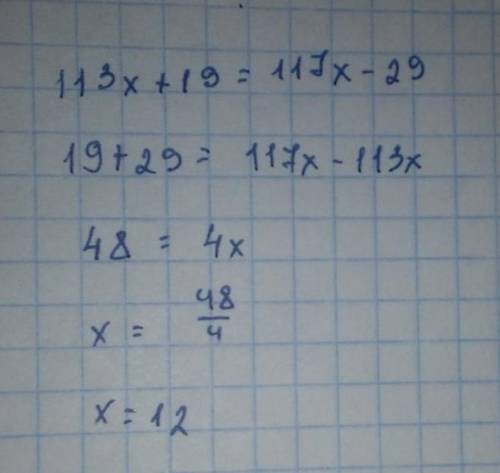 113x + 19 = 117x - 29
19 + 29 = 117x - 113x
48 = 4x
x = 48/4
x = 12